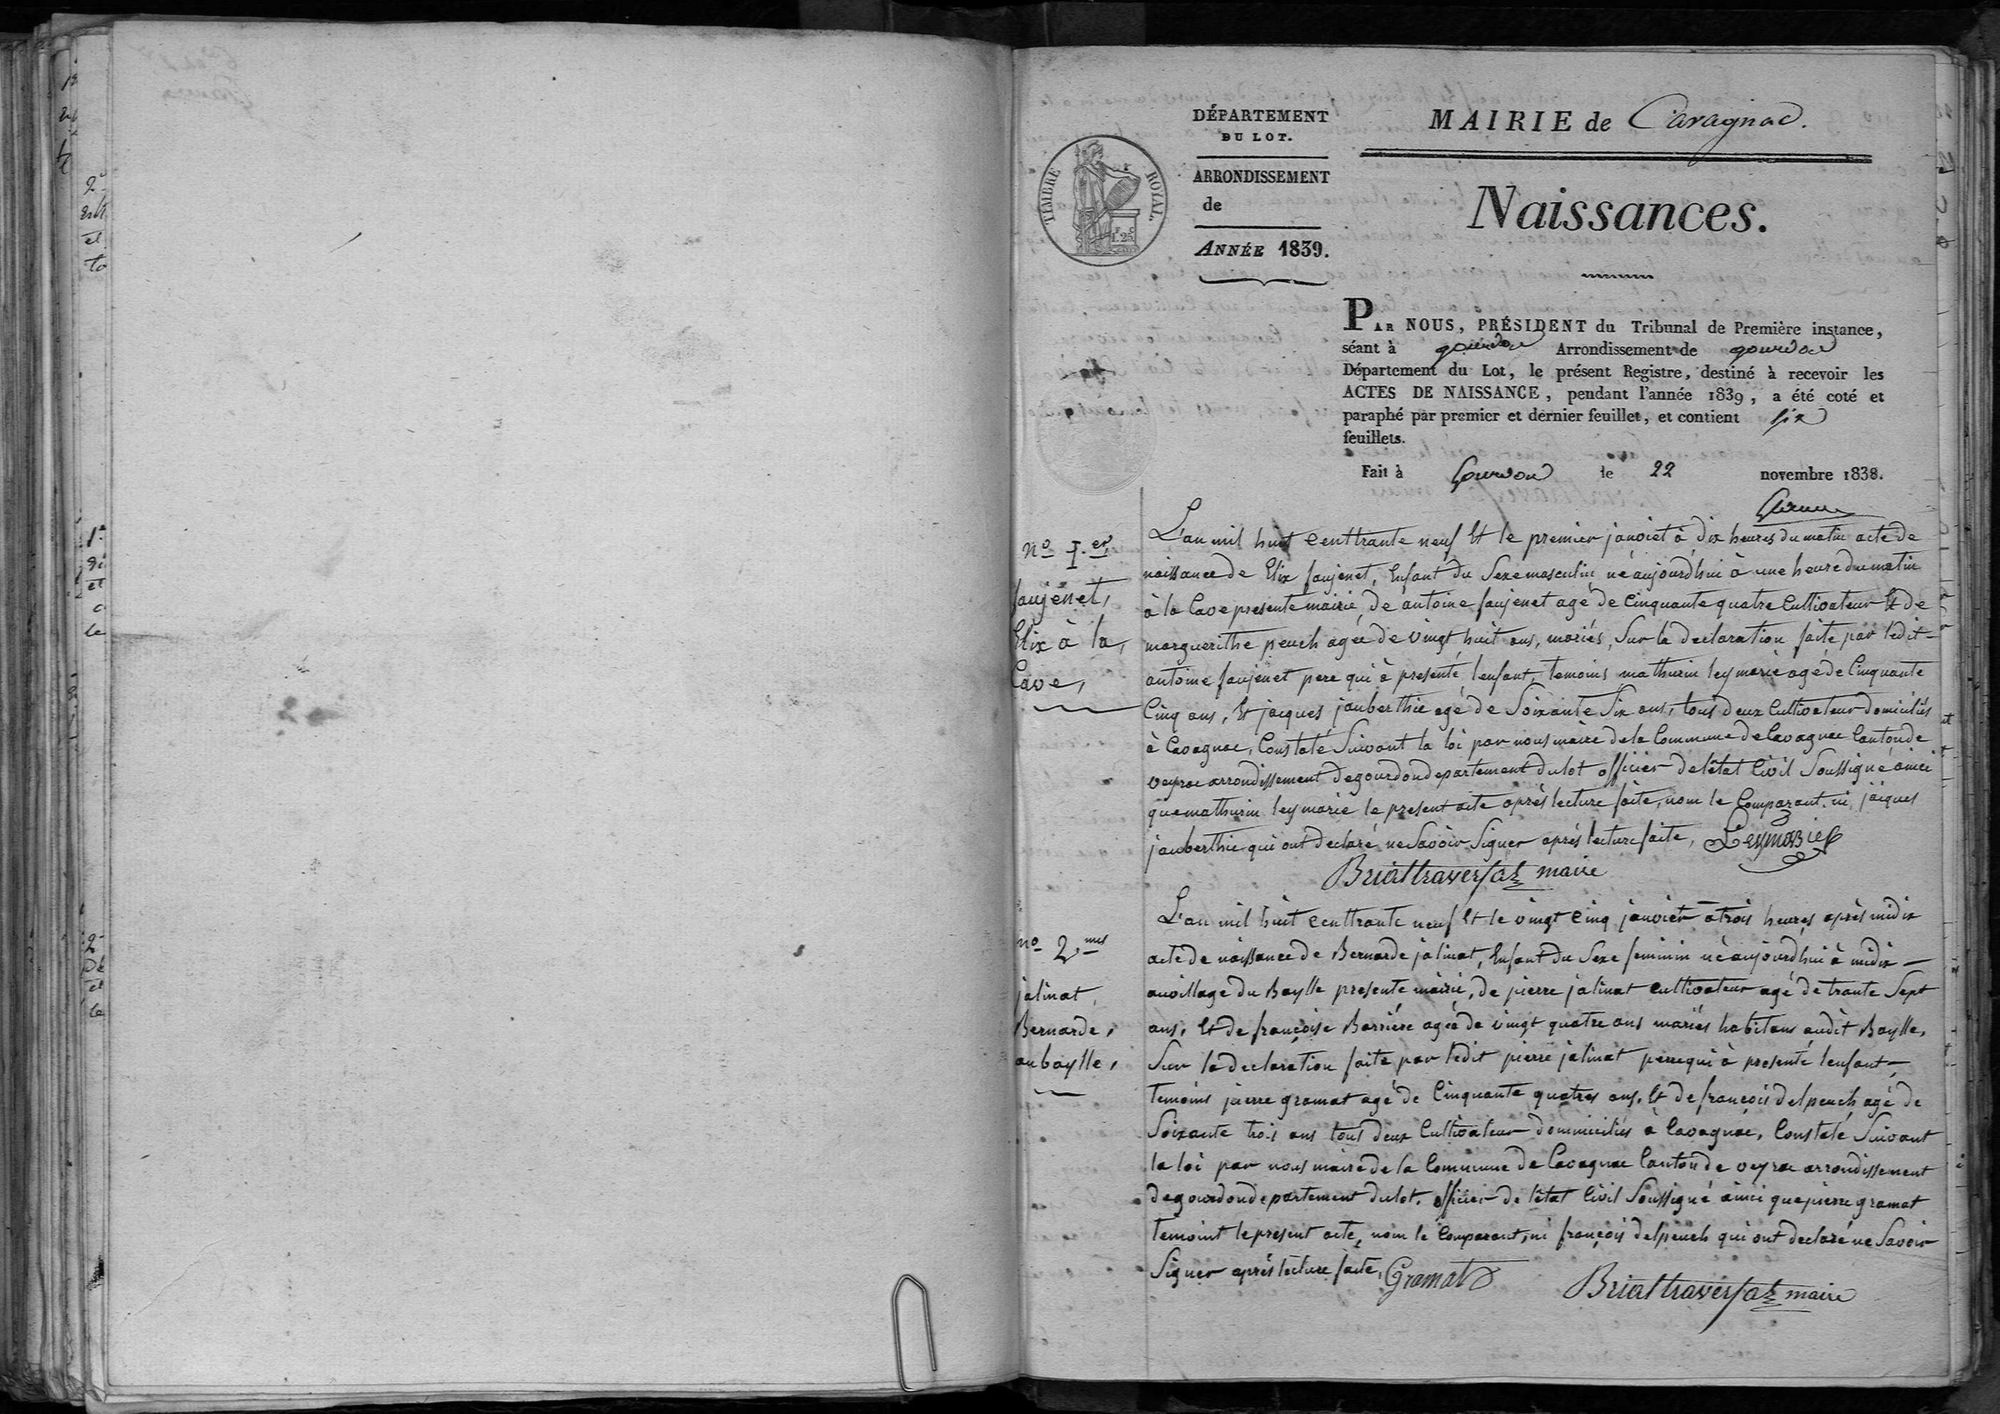 DÉPARTEMENT
DU LOT.
ARRONDISSEMENT
de
ANNÉE 1839.
TIMBRE ROYAL.
F. C.
1. 25
MAIRIE de Cavagnac.
Naissances.
PAR NOUS, PRÉSIDENT du Tribunal de Première instance,
séant à gourdon Arrondissement de gourdon
Département du Lot, le présent Registre, destiné à recevoir les
ACTES DE NAISSANCE, pendant l'année 1839, a été coté et
paraphé par premier et dernier feuillet, et contient six
feuillets.
Fait à Gourdon le 22 novembre 1838.
no 1.er
faujenet,
Elix à la,
Cave,
L'an mil huit centtrante neuf Et le premier janviet à dix heures du matin acte de
naissance de Elix faujenet, Enfant du Sexe masculin né aujourdhui à une heure du matin
à la Cave presente mairie, de antoine faujenet agé de Cinquante quatre Cultivateur Et de
marguerithe peuch agée de vingt huit ans, mariés, Sur la declaration faite par ledit
antoine faujenet pere qui à presenté lenfant, temoins mathurin leymarie agé de Cinquante
Cinq ans, Et jacques jauberthie agé de Soixante Six ans, tous deux Cultivateur domiciliés
à Cavagnac, Constaté Suivant la loi par nous maire de la Commune de Cavagnac Canton de
veyrac arrondissement de gourdon departement du lot officier de létat Civil Soussigné ainci
que mathurin leymarie le present acte après lecture faite, nom le Comparant ni jacques
jauberthie qui ont declaré ne Savoir Signer après lecture faite, Leymarie
Briattraversat maire
no 2.me
jalinat,
Bernarde,
au baylle,
L'an mil huit centtrante neuf Et le vingt Cinq janvier à trois heures après midix
acte de naissance de Bernarde jalinat, Enfant du Sexe feminin né aujourdhui à midix
au village du Baylle presente mairie, de pierre jalinat Cultivateur agé de trante Sept
ans, Et de françoise Barriére agée de vingt quatre ans mariés habitans audit Baylle,
Sur la declaration faite par ledit pierre jalinat perre qui à presenté lenfant,
temoins pierre gramat agé de Cinquante quatres ans, Et de françois delpeuch agé de
Soixante trois ans tous deux Cultivateur dommiciliés à Cavagnac, Constaté Suivant
la loi par nous maire de la Commune de Cavagnac Canton de veyrac arrondissement
de gourdon departement du lot, officier de létat Civil Soussigné ainci que pierre gramat
temoint le present acte, nom le Comparant, ni françois delpeuch qui ont declaré ne Savoir
Signer après lecture faite, Gramat
Briattraversat maire